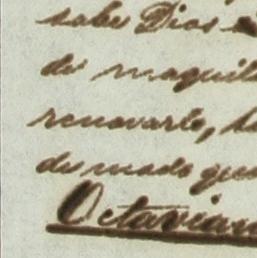 sabe Dios
de maquil
renovarle,
de modo que
Octavian